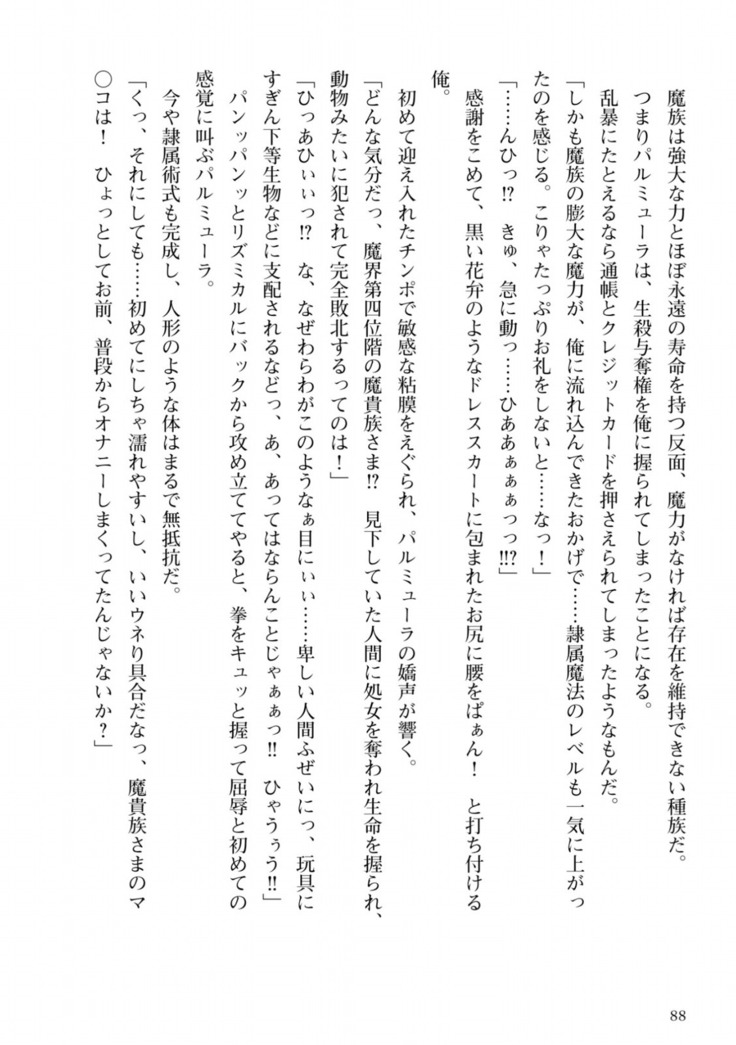 魔族は強大な力とほぼ永遠の寿命を持つ反面、魔力がなければ存在を維持できない種族だ。
つまりパルミューラは、生殺与奪権を俺に握られてしまったことになる。
乱暴にたとえるなら通帳とクレジットカードを押さえられてしまったようなもんだ。
「しかも魔族の膨大な魔力が、俺に流れ込んできたおかげで……隷属魔法のレベルも一気に上がっ
たのを感じる。こりゃたっぷりお礼をしないと……なっ！」
「……んひっ!?　きゅ、急に動っ……ひああぁぁぁっっ!!?」
感謝をこめて、黒い花弁のようなドレススカートに包まれたお尻に腰をぱぁん！　と打ち付ける
俺。
初めて迎え入れたチンポで敏感な粘膜をえぐられ、パルミューラの嬌声が響く。
「どんな気分だっ、魔界第四位階の魔貴族さま!?　見下していた人間に処女を奪われ生命を握られ、
動物みたいに犯されて完全敗北するってのは！」
「ひっあひぃぃっ!?　な、なぜわらわがこのようなぁ目にぃぃ……卑しい人間ふぜいにっ、玩具に
すぎん下等生物などに支配されるなどっ、あ、あってはならんことじゃぁぁっ!!　ひゃうぅう!!」
パンッパンッとリズミカルにバックから攻め立ててやると、拳をキュッと握って屈辱と初めての
感覚に叫ぶパルミューラ。
今や隷属術式も完成し、人形のような体はまるで無抵抗だ。
「くっ、それにしても……初めてにしちゃ濡れやすいし、いいウネり具合だなっ、魔貴族さまのマ
〇コは！　ひょっとしてお前、普段からオナニーしまくってたんじゃないか？」
88